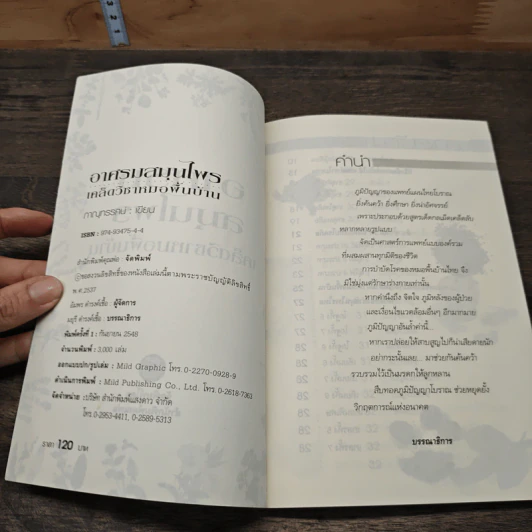 อาศรมสมุนไพร
เคล็ดวิชาหมอพื้นบ้าน
กาญทรรศน์ : เขียน
ISBN : 974-93475-4-4
สำนักพิมพ์คุณพ่อ : จัดพิมพ์
ของงานลิขสิทธิ์ของหนังสือเล่มนี้ตามพระราชบัญญัติลิขสิทธิ์
พ.ศ.2537
อัมพร ดำรงค์เชื้อ : ผู้จัดการ
มยุรี ดำรงค์เชื้อ : บรรณาธิการ
พิมพ์ครั้งที่ 1 : กันยายน 2548
จำนวนพิมพ์ : 3,000 เล่ม
ออกแบบปก/รูปเล่ม : Mild Graphic โทร. 0-2270-0928-9
ดำเนินการพิมพ์ : Mild Publishing Co., Ltd. โทร. 0-2618-7363
จัดจำหน่าย : บริษัท สำนักพิมพ์แสงดาว จำกัด
โทร. 0-2883-4411, 0-2589-5313
ราคา 120 บาท
คำนำ
ภูมิปัญญาของแพทย์แผนไทยโบราณ
ยิ่งค้นคว้า ยิ่งศึกษา ยิ่งน่าอัศจรรย์
เพราะประกอบด้วยสูตรเด็ดกลเม็ดเคล็ดลับ
หลากหลายรูปแบบ
จัดเป็นศาสตร์การแพทย์แบบองค์รวม
ที่ผสมผสานภูมิดีของชีวิต
การบำบัดโรคของหมอพื้นบ้านไทย จึง
มิใช่มุ่งแค่รักษาร่างกายเท่านั้น
หากคำนึงถึง จิตใจ ภูมิหลังของผู้ป่วย
และเงื่อนไขแวดล้อมอื่นๆ อีกมากมาย
ภูมิปัญญาอันล้ำค่านี้...
หากเราปล่อยให้สาบสูญไปก็น่าเสียดายนัก
อย่ากระนั้นเลย... มาช่วยกันค้นคว้า
รวบรวมไว้เป็นมรดกให้ลูกหลาน
สืบทอดภูมิปัญญาโบราณ ช่วยหยุดยั้ง
วิกฤตการณ์แห่งอนาคต
บรรณาธิการ